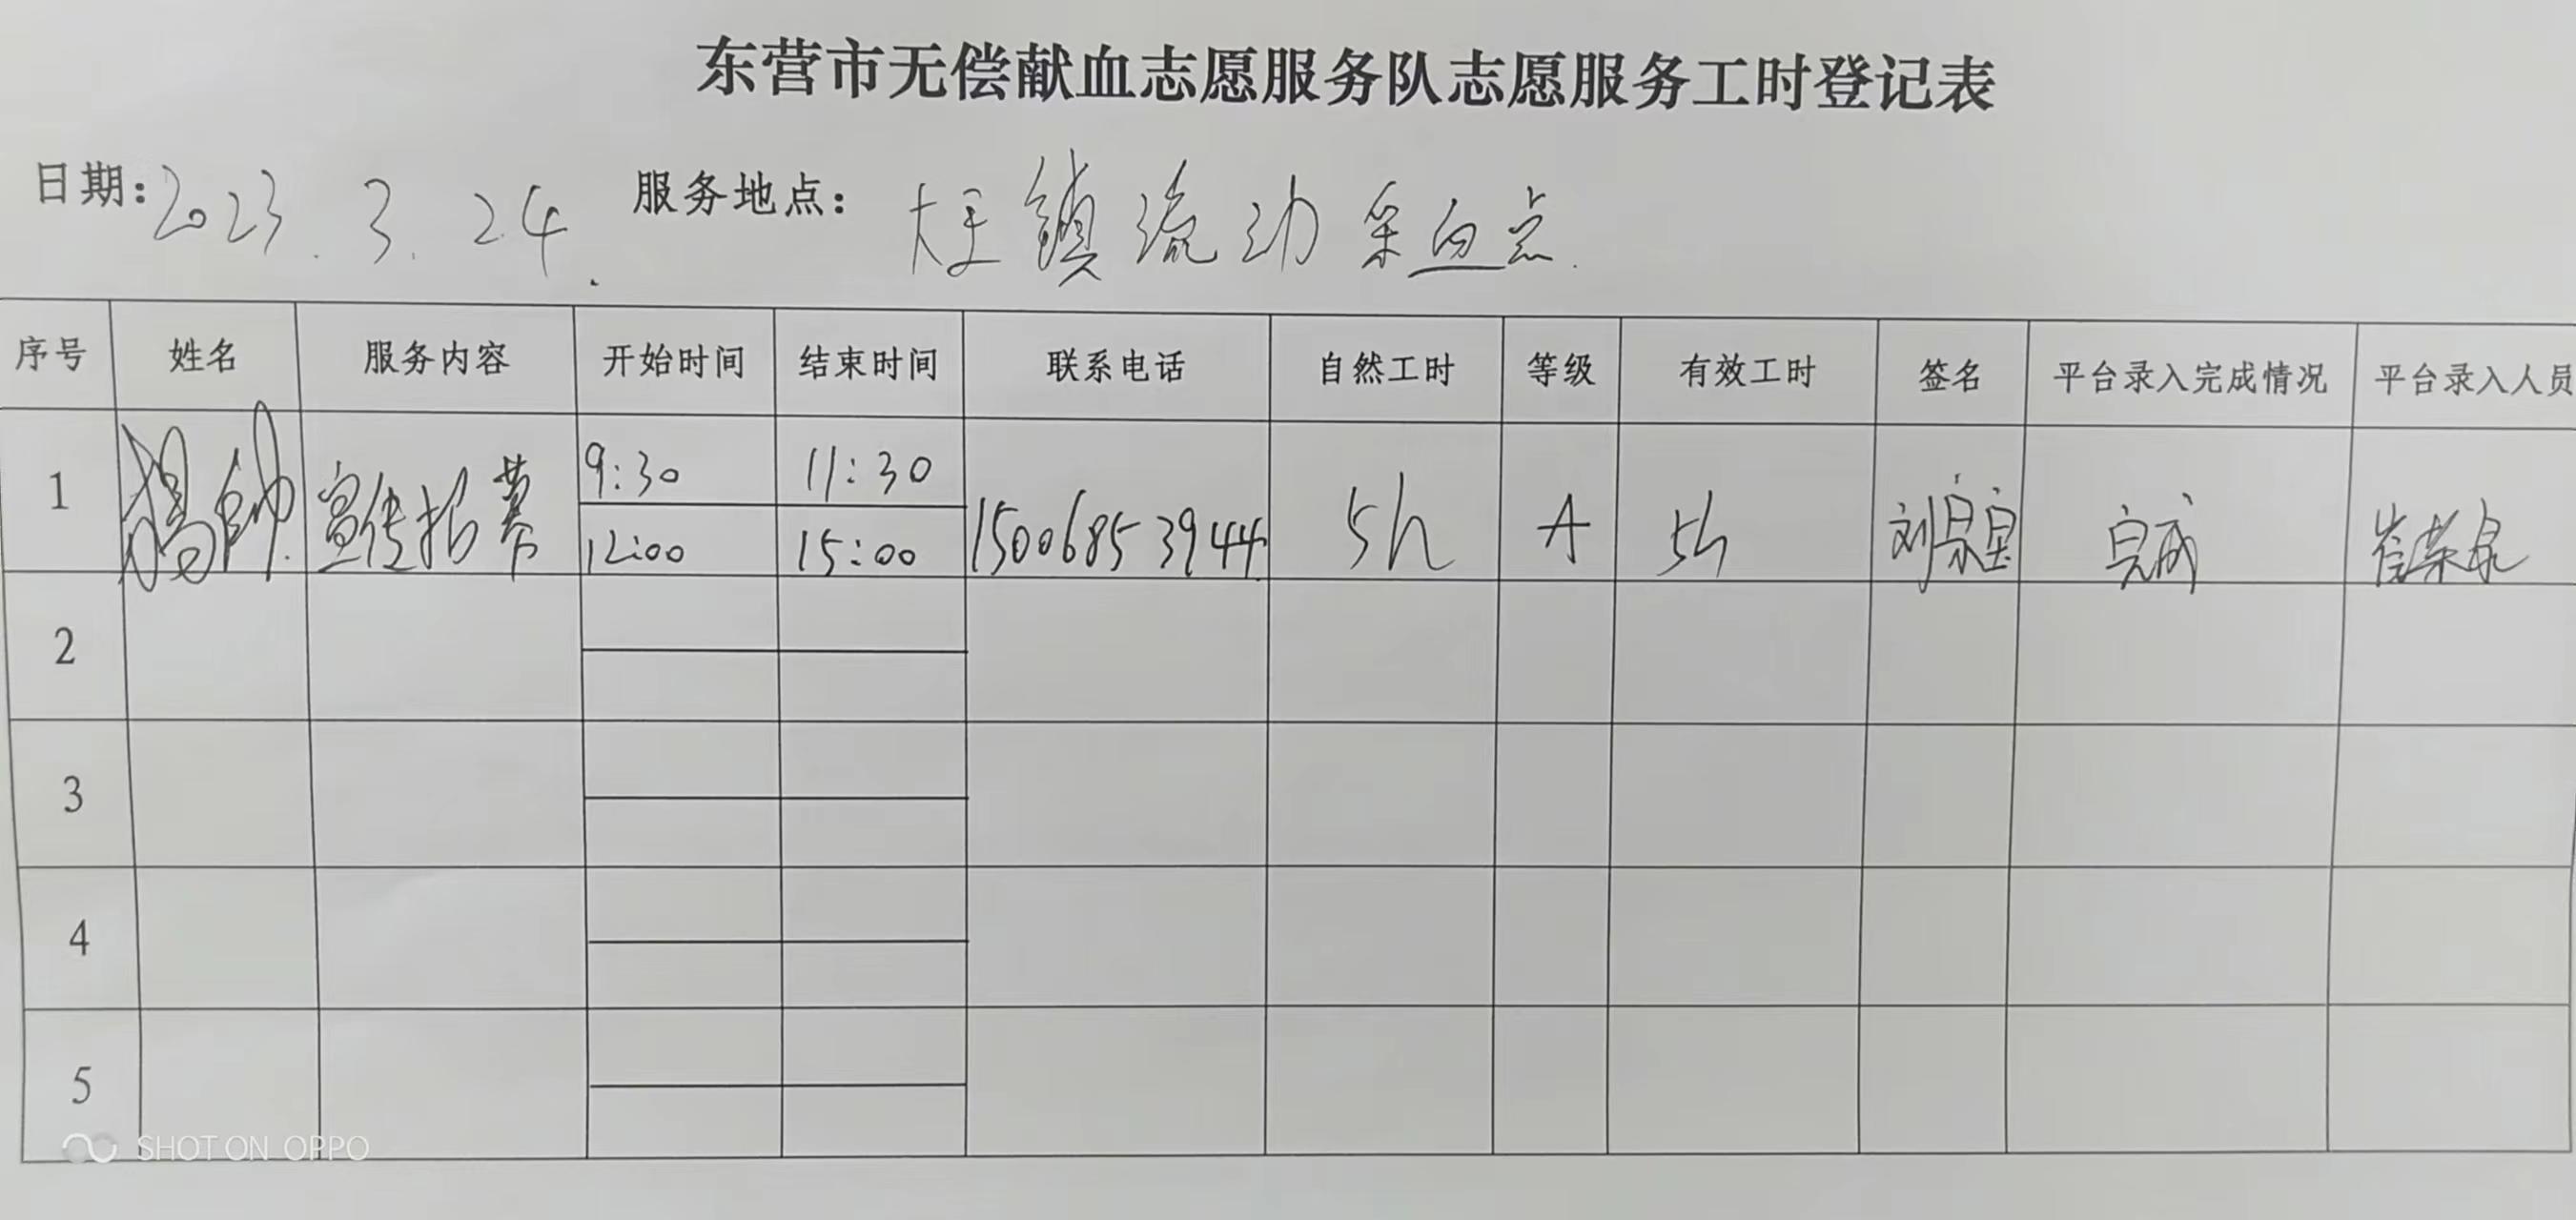 东营市无偿献血志愿服务队志愿服务工时登记表
日期: 2023.3.24. 服务地点: 大王镇流动采血点.
序号 姓名 服务内容 开始时间 结束时间 联系电话 自然工时 等级 有效工时 签名 平台录入完成情况 平台录入人员
1 杨帅 宣传招募 9:30 11:30 15006853944 5h A 5h 刘宗宝 完成 崔荣泉
12:00 15:00
2
3
4
5
SHOT ON OPPO